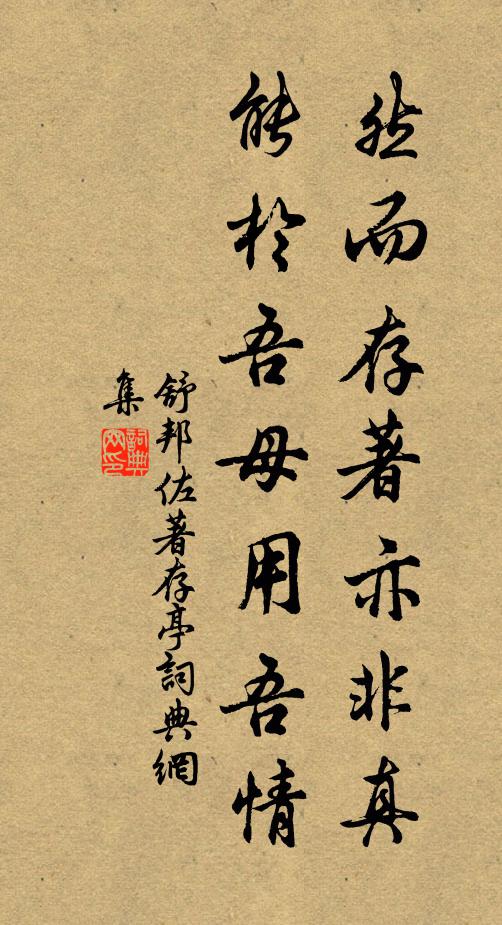 然而存著亦非真
能於吾母用吾情
舒邦佐著存亭詞典網
集
詞典
网印